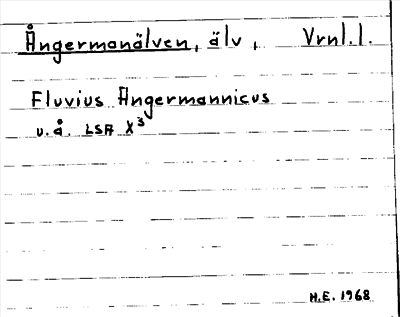 Ångermanälven, älv, Vrnl.l.
Fluvius Angermannicus
u.å. LSA X³
H.E. 1968